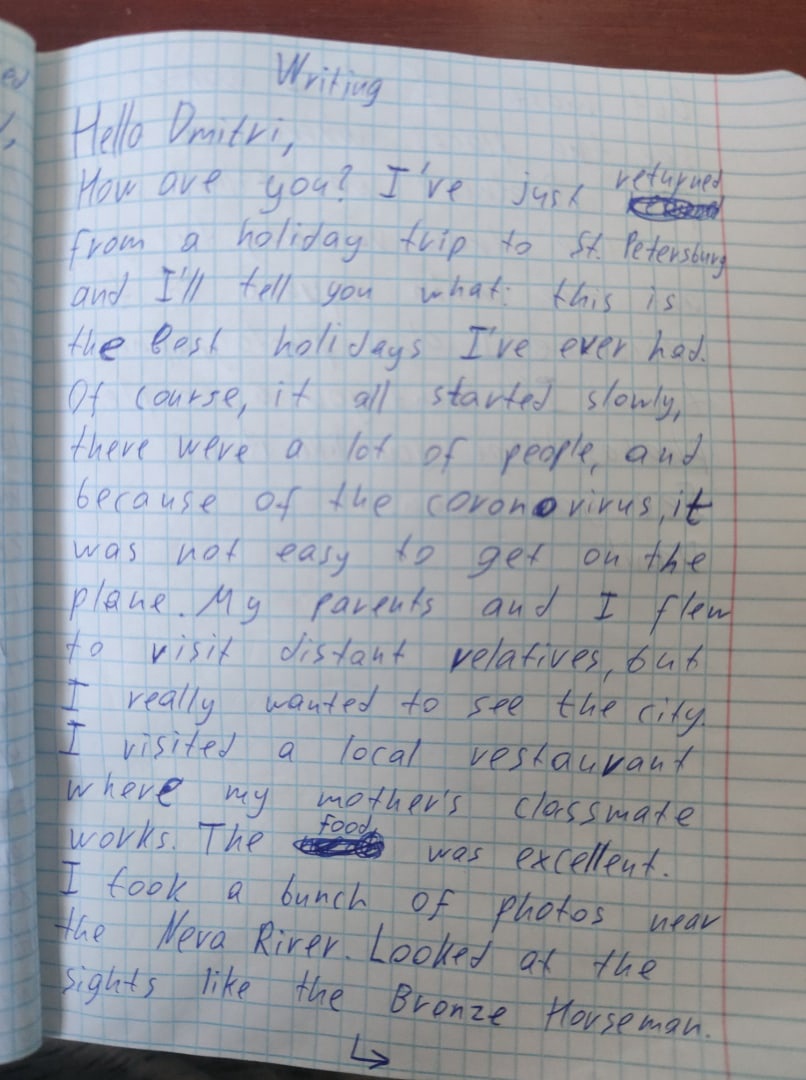 Writing
Hello Dmitri,
How are you? I've just returned
from a holiday trip to St. Petersburg
and I'll tell you what: this is
the best holidays I've ever had.
Of course, it all started slowly,
there were a lot of people, and
because of the coronovirus, it
was not easy to get on the
plane. My parents and I flew
to visit distant relatives, but
I really wanted to see the city.
I visited a local restaurant
where my mother's classmate
works. The food was excellent.
I took a bunch of photos near
the Neva River. Looked at the
sights like the Bronze Horseman.